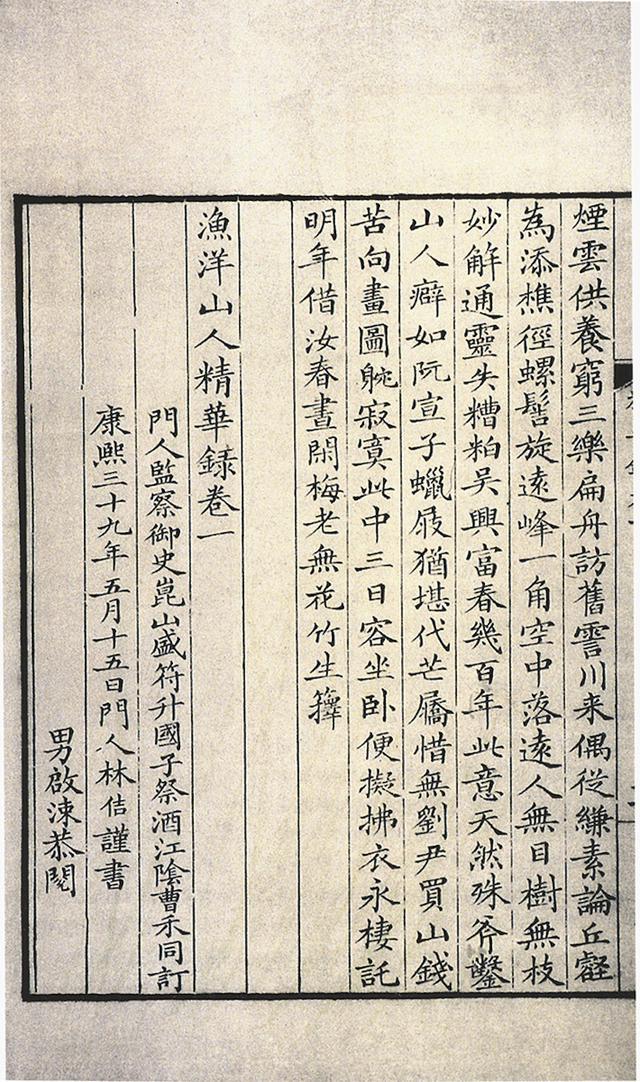 煙雲供養窮三樂扁舟訪舊霅川来偶從縑素論丘壑
為添樵徑螺髻旋遠峰一角空中落遠人無目樹無枝
妙解通靈失糟粕吴興富春幾百年此意天然殊斧鑿
山人癖如阮宣子蠟屐猶堪代芒屩惜無劉尹買山錢
苦向畫圖躭寂寞此中三日容坐卧便擬拂衣永棲託
明年借汝春晝閑梅老無花竹生籜
漁洋山人精華録卷一
門人監察御史崑山盛符升國子祭酒江陰曹禾同訂
康熙三十九年五月十五日門人林佶謹書
男啟涑恭閱